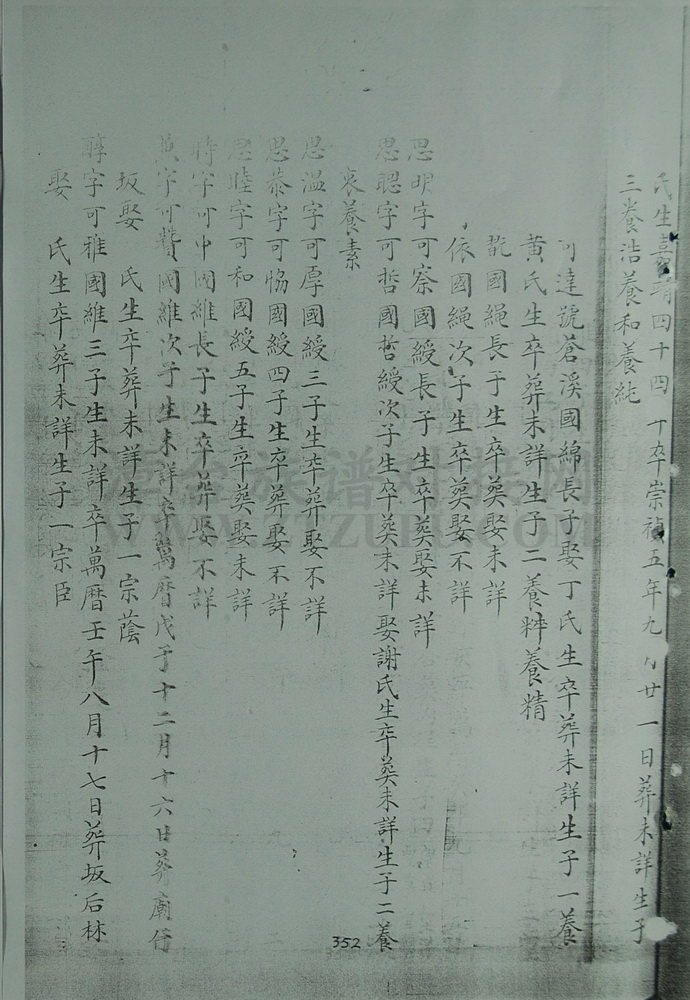 氏生嘉靖四十四 丁卒崇禎五年九月廿一日葬未詳生子
三養浩養和養純
可達號蒼溪國綿長子娶丁氏生卒葬未詳生子一養
黄氏生卒葬未詳生子二養粹養精
國繩長子生卒葬娶未詳
依國繩次子生卒葬娶不詳
思明字可察國綬長子生卒葬娶未詳
思聰字可哲國哲綬次子生卒葬未詳娶謝氏生卒葬未詳生子二養
衷養素
思溫字可厚國綬三子生卒葬娶不詳
思恭字可恊國綬四子生卒葬娶不詳
思睦字可和國綬五子生卒葬娶未詳
時字可中國維長子生卒葬娶不詳
字可贊國維次子生未詳卒萬曆戊子十二月十六日葬廟仔
坂娶 氏生卒葬未詳生子一宗蔭
醇字可雅國維三子生未詳卒萬曆壬午八月十七日葬坂后林
娶 氏生卒葬未詳生子一宗臣
352